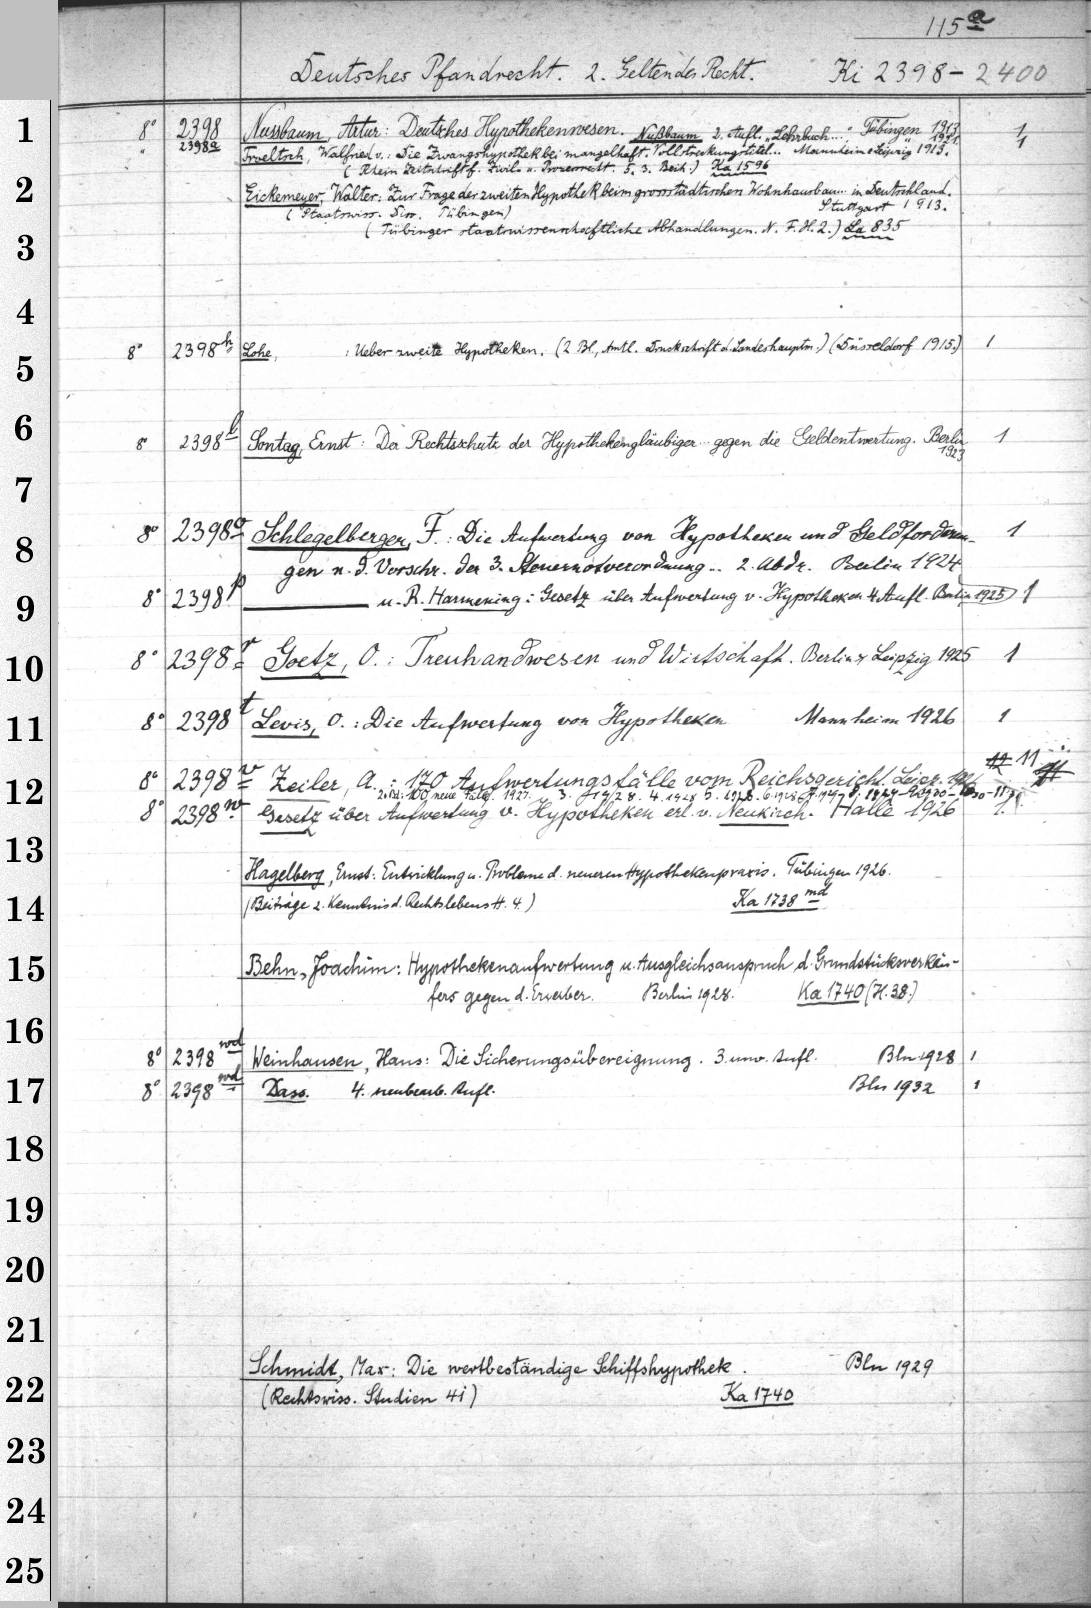 115a
Deutsches Pfandrecht. 2. Geltendes Recht. Ki 2398-2400
1 8° 2398 Nussbaum, Artur: Deutsches Hypothekenwesen. Tübingen 1913 1
8° 2398a Nußbaum 2. Aufl. „Lehrbuch..." 1921. 1
Troeltsch, Walfried v.: Die Zwangshypothek bei mangelhaft. Vollstreckungstitel.. Mannheim & Leipzig 1915.
(Rhein. Zeitschrift f. Zivil- u. Prozessrecht. 5, 3. Beih.) Ka 1596
2 Eickemeyer, Walter: Zur Frage der zweiten Hypothek beim grosstädtischen Wohnhausbau.. in Deutschland.
(Staatswiss. Diss. Tübingen) Stuttgart 1913.
3 (Tübinger staatswissenschaftliche Abhandlungen. N. F. H. 2.) La 835
4
5 8° 2398h Lohe, : Ueber zweite Hypotheken. (2 Bl., Amtl. Druckschrift d. Landeshauptm.) (Düsseldorf 1915.) 1
6 8° 2398l Sontag, Ernst: Der Rechtsschutz der Hypothekengläubiger.. gegen die Geldentwertung. Berlin 1923 1
7
8 8° 2398o Schlegelberger, F.: Die Aufwertung von Hypotheken und Geldforderun-
gen n. d. Vorschr. der 3. Steuernotverordnung.. 2. Abdr. Berlin 1924 1
9 8° 2398p ——— u. R. Harmening: Gesetz über Aufwertung v. Hypotheken 4. Aufl. Berlin 1925 1
10 8° 2398r Goetz, O.: Treuhandwesen und Wirtschaft. Berlin & Leipzig 1925 1
11 8° 2398t Levis, O.: Die Aufwertung von Hypotheken Mannheim 1926 1
12 8° 2398v Zeiler, A.: 170 Aufwertungsfälle vom Reichsgericht Leipz. 1926 11
100 neue Fälle. 1927. 3. 1928. 4. 1928
8° 2398w Gesetz über Aufwertung v. Hypotheken erl. v. Neukirch. Halle 1926 1.
13 Hagelberg, Ernst: Entwicklung u. Probleme d. neueren Hypothekenpraxis. Tübingen 1926.
14 (Beiträge z. Kenntnis d. Rechtslebens H. 4.) Ka 1738 md
15 Behn, Joachim: Hypothekenaufwertung u. Ausgleichsanspruch d. Grundstücksverkäu-
fers gegen d. Erwerber. Berlin 1928. Ka 1740 (H. 38.)
16 8° 2398wd Weinhausen, Hans: Die Sicherungsübereignung. 3. unv. Aufl. Bln 1928 1
17 8° 2398wd Dass. 4. neubearb. Aufl. Bln 1932 1
18
19
20
21
22 Schmidt, Max: Die wertbeständige Schiffshypothek. Bln 1929
(Rechtswiss. Studien 41) Ka 1740
23
24
25